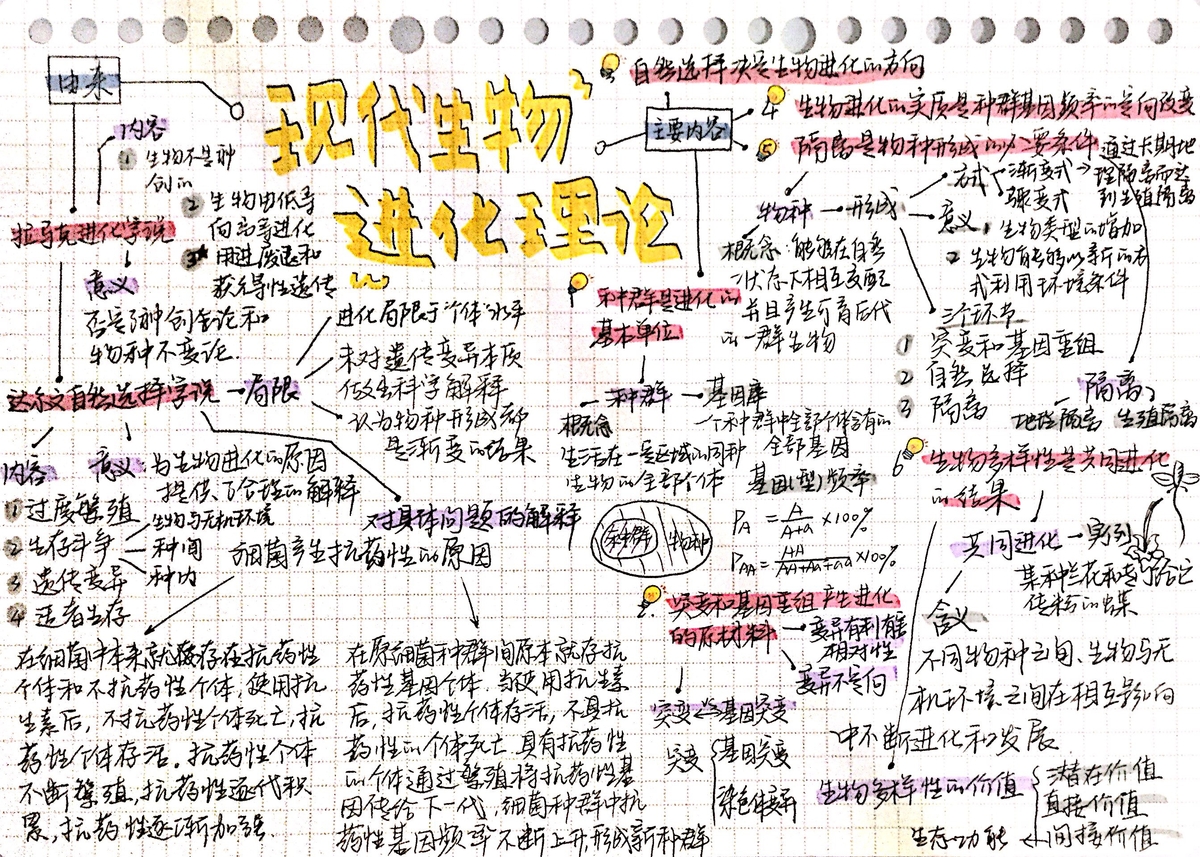 由来
现代生物
进化理论
内容
① 生物不是神
创的
② 生物由低等
向高等进化
③ 用进废退和
获得性遗传
拉马克进化学说
意义
否定了神创论和
物种不变论.
达尔文自然选择学说
局限
进化局限于"个体"水平
未对遗传变异本质
做出科学解释
认为物种形成都
是渐变的结果
内容
① 过度繁殖
② 生存斗争
生物与无机环境
种间
种内
③ 遗传变异
④ 适者生存
意义: 为生物进化的原因
提供了合理的解释
对具体问题的解释
细菌产生抗药性的原因
在细菌中本来就存在抗药性
个体和不抗药性个体,使用抗
生素后,不抗药性个体死亡,抗
药性个体存活。抗药性个体
不断繁殖,抗药性逐代积
累,抗药性逐渐加强.
在原细菌种群间原本就存抗
药性基因个体.当使用抗生素
后,抗药性个体存活,不具抗
药性的个体死亡.具有抗药性
的个体通过繁殖将抗药性基
因传给下一代,细菌种群中抗
药性基因频率不断上升,形成新种群
主要内容
3 自然选择决定生物进化的方向
4 生物进化的实质是种群基因频率的定向改变
⑤ 隔离是物种形成的必要条件
物种
形成
概念:能够在自然
状态下相互交配
并且产生可育后代
的一群生物
方式
渐变式
骤变式
通过长期地
理隔离而达
到生殖隔离
意义
1 生物类型的增加
2 生物能够以新的方
式利用环境条件
三个环节
① 突变和基因重组
② 自然选择
③ 隔离
隔离
地理隔离
生殖隔离
种群是进化的
基本单位
种群
概念
生活在一定区域的同种
生物的全部个体
基因库
一个种群中全部个体含有的
全部基因
基因(型)频率
PA = A/A+a ×100%
PAA = AA/AA+Aa+aa ×100%
种群
物种
2. 突变和基因重组产生进化
的原材料
变异有利有害
相对性
变异不定向
突变
基因突变
突变
基因突变
染色体变异
6 生物多样性是共同进化
的结果
共同进化
实例
某种兰花和专门给它
传粉的蛾
含义
不同物种之间、生物与无
机环境之间在相互影响
中不断进化和发展
生物多样性的价值
潜在价值
直接价值
间接价值
生态功能